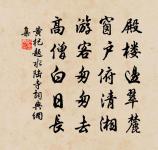 殿楼边翠麓
窗户俯清湘
游客匆匆去
高僧白日长
黄圯越水陆寺词典网
集